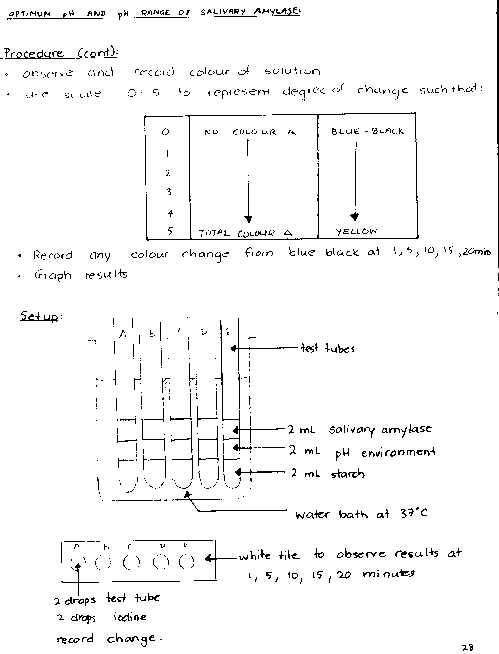 OPTIMUM pH AND pH RANGE OF SALIVARY AMYLASE:
Procedure (cont):
• observe and record colour of solution
• use scale 0-5 to represent degree of change such that:
0 NO COLOUR Δ BLUE-BLACK
1
2
3
4
5 TOTAL COLOUR Δ YELLOW
• Record any colour change from blue black at 1, 5, 10, 15, 20min
• Graph results
Set up:
A B C D E
test tubes
2 mL salivary amylase
2 mL pH environment
2 mL starch
water bath at 37°C
A B C D E
white tile to observe results at
1, 5, 10, 15, 20 minutes
2 drops test tube
2 drops iodine
record change.
28